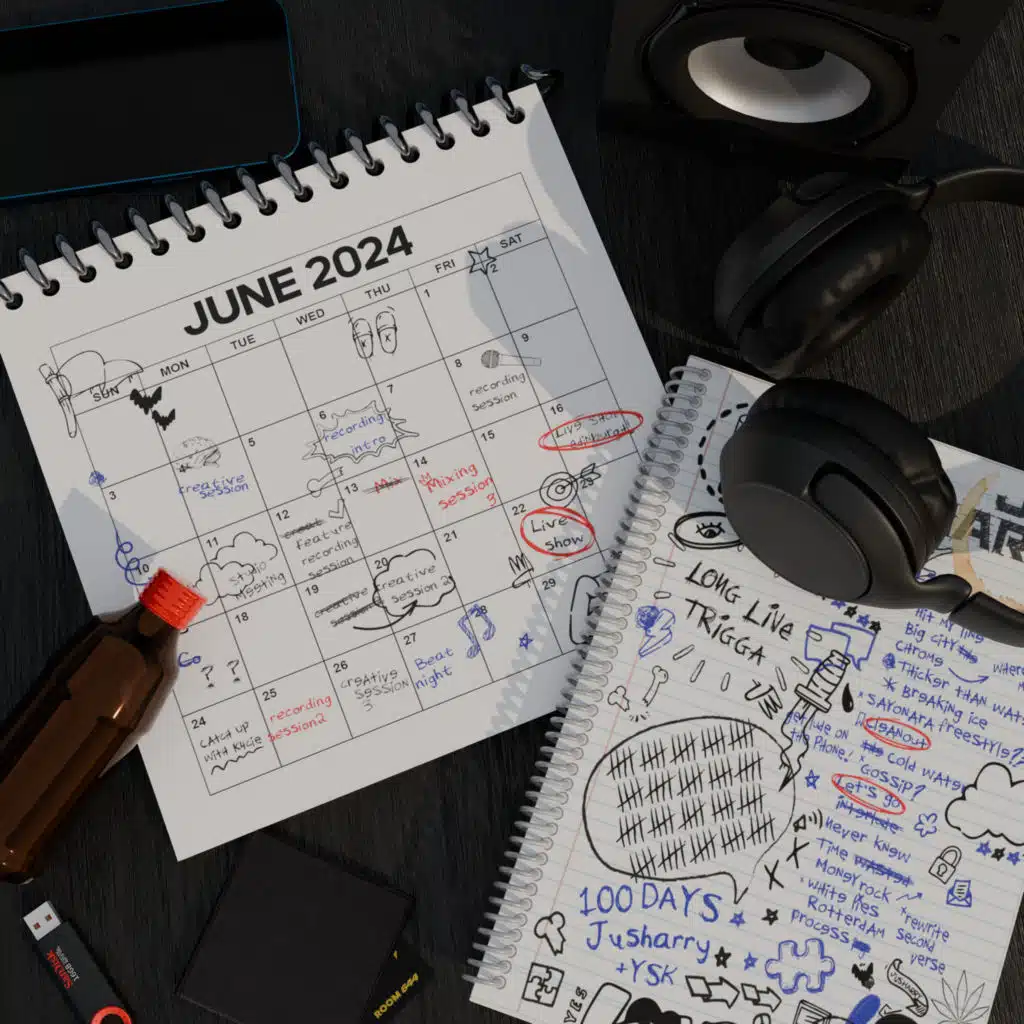 JUNE 2024
SUN MON TUE WED THU FRI SAT
1
2
3
4
creative
session
5
6
recording
intro
7
8
recording
session
9
10
11
studio
Meeting
12
feature
recording
session
13
Mix
14
Mixing
session
3
15
16
Live
18
19
creative
session
20
creative
session 2
21
22
Live
show
Go
? ?
24
CATCH UP
WITH Kycie
25
recording
session2
26
creative
session
3
27
Beat
night
28
29
29
SanDisk
ROOM 644
LONG LIVE
TRIGGA
100 DAYS
Jusharry
+YSK
YES
AR
Hit My line
Big city
CHROME
where
THICKER THAN WAT
BREAKING ICE
SAYONARA freestyle??
CLEANOUT
get dude on
the PHONE!
COLD WATER
GOSSIP?
Let's go
interlude
Never knew
TIME WASTED
Money rock
White lies
ROTTERDAM
Process
rewrite
second
verse
JUSHARRY